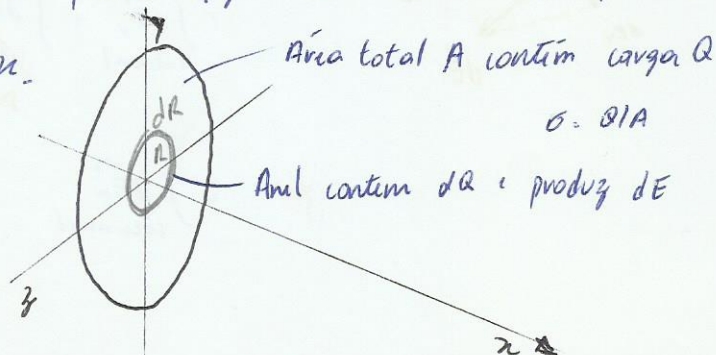 y
Área total A contém carga Q
n.
dR
σ = Q/A
R
Anel contem dQ e produz dE
z
x